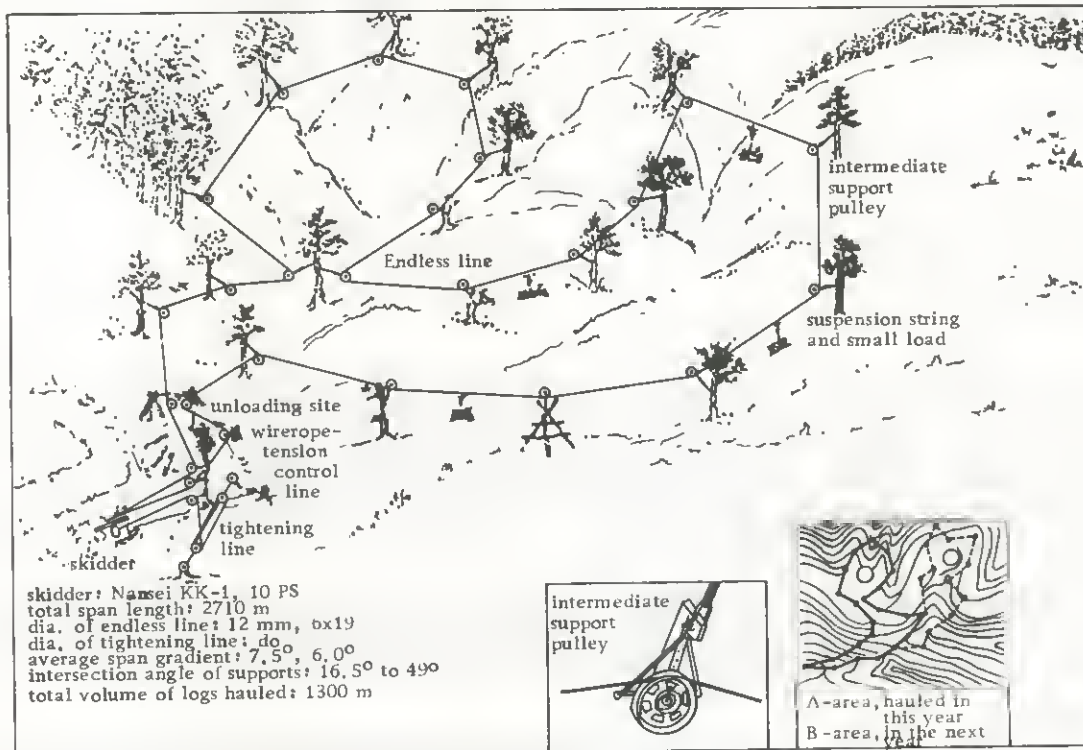 intermediate
support
pulley
Endless line
suspension string
and small load
unloading site
wirerope-
tension
control
line
tightening
line
skidder
skidder: Nansei KK-1, 10 PS
total span length: 2710 m
dia. of endless line: 12 mm, 6x19
dia. of tightening line: do
average span gradient: 7.5°, 6.0°
intersection angle of supports: 16.5° to 49°
total volume of logs hauled: 1300 m
intermediate
support
pulley
A-area, hauled in
this year
B-area, in the next
year